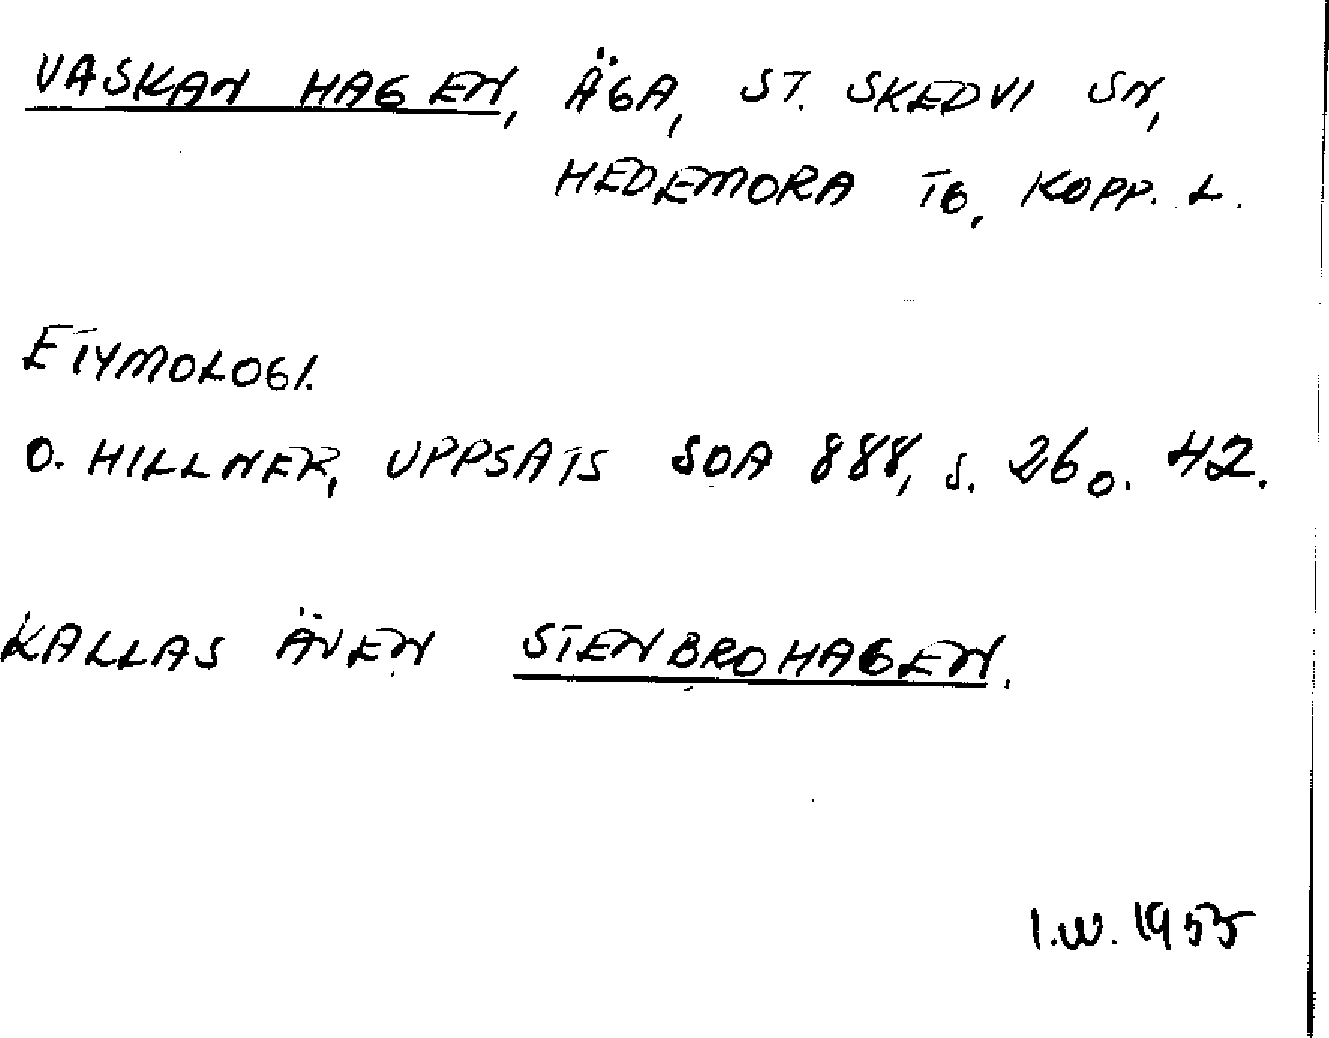 VASKAN HAGEN, ÄGA, ST. SKEDVI SN,
HEDEMORA TG, KOPP. L.
ETYMOLOGI.
O. HILLNER, UPPSATS SOA 888, s. 26 o. 42.
KALLAS ÄVEN STENBROHAGEN.
I.W. 1955